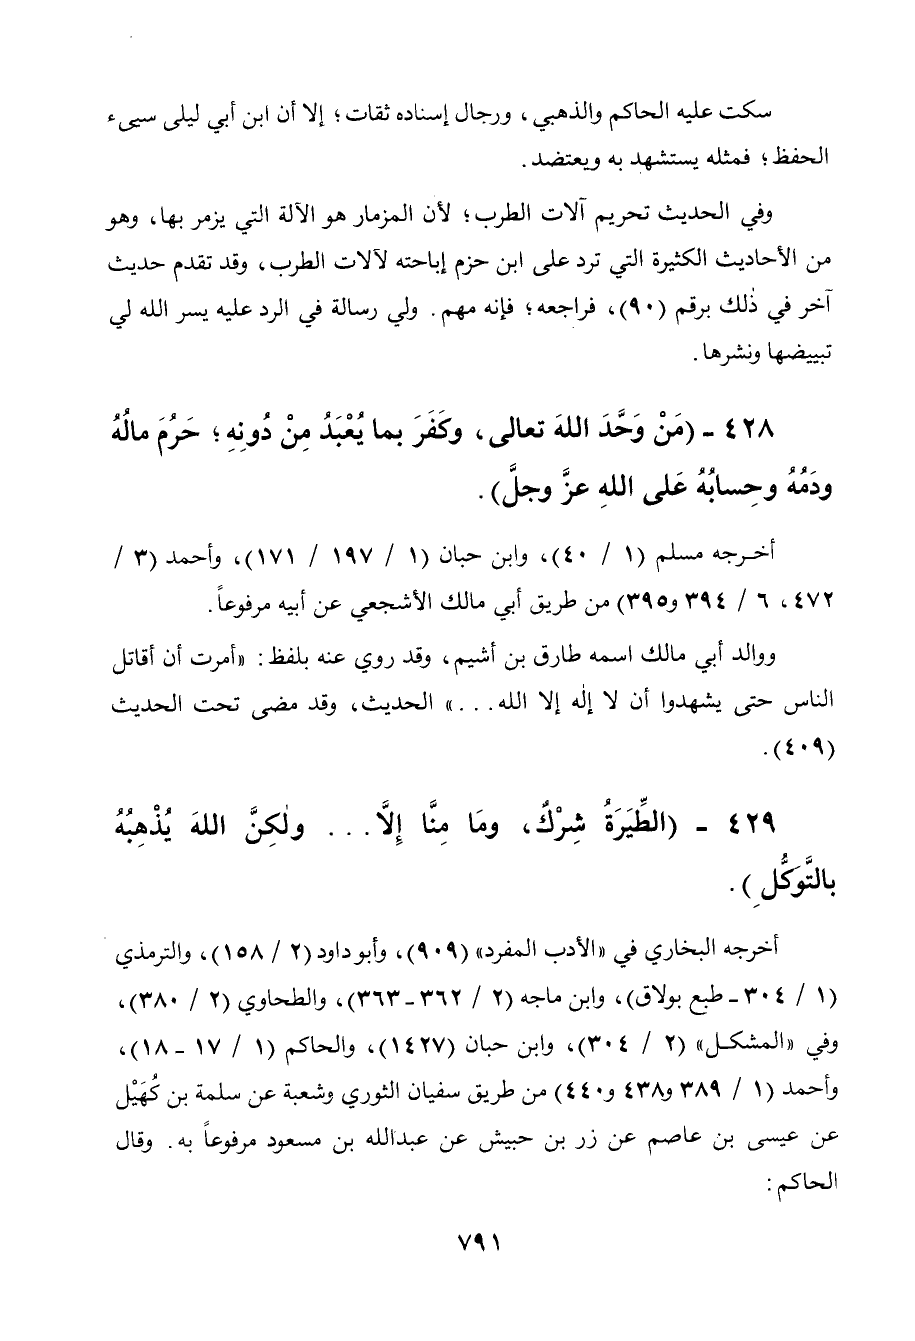 سكت عليه الحاكم والذهبي، ورجال إسناده ثقات؛ إلا أن ابن أبي ليلى سيىء
الحفظ؛ فمثله يستشهد به ويعتضد.
وفي الحديث تحريم آلات الطرب؛ لأن المزمار هو الآلة التي يزمر بها، وهو
من الأحاديث الكثيرة التي ترد على ابن حزم إباحته لآلات الطرب، وقد تقدم حديث
آخر في ذٰلك برقم (٩٠)، فراجعه؛ فإنه مهم. ولي رسالة في الرد عليه يسر الله لي
تبييضها ونشرها.
٤٢٨ ـ (مَنْ وَحَّدَ اللهَ تعالى، وكَفَرَ بما يُعْبَدُ مِنْ دُونِهِ؛ حَرُمَ مالُهُ
ودَمُهُ وحِسابُهُ عَلى اللهِ عزَّ وجلَّ).
أخرجه مسلم (١ / ٤٠)، وابن حبان (١ / ١٩٧ / ١٧١)، وأحمد (٣ /
٤٧٢، ٦ / ٣٩٤ و٣٩٥) من طريق أبي مالك الأشجعي عن أبيه مرفوعاً.
ووالد أبي مالك اسمه طارق بن أشيم، وقد روي عنه بلفظ: «أمرت أن أقاتل
الناس حتى يشهدوا أن لا إلٰه إلا الله...» الحديث، وقد مضى تحت الحديث
(٤٠٩).
٤٢٩ ـ (الطِّيَرَةُ شِرْكٌ، ومَا مِنَّا إِلَّا... ولٰكِنَّ اللهَ يُذْهِبُهُ
بالتَّوَكُّلِ).
أخرجه البخاري في «الأدب المفرد» (٩٠٩)، وأبو داود (٢ / ١٥٨)، والترمذي
(١ / ٣٠٤ ـ طبع بولاق)، وابن ماجه (٢ / ٣٦٢ ـ ٣٦٣)، والطحاوي (٢ / ٣٨٠)،
وفي «المشكل» (٢ / ٣٠٤)، وابن حبان (١٤٢٧)، والحاكم (١ / ١٧ ـ ١٨)،
وأحمد (١ / ٣٨٩ و٤٣٨ و٤٤٠) من طريق سفيان الثوري وشعبة عن سلمة بن كُهَيْل
عن عيسى بن عاصم عن زر بن حبيش عن عبدالله بن مسعود مرفوعاً به. وقال
الحاكم:
٧٩١